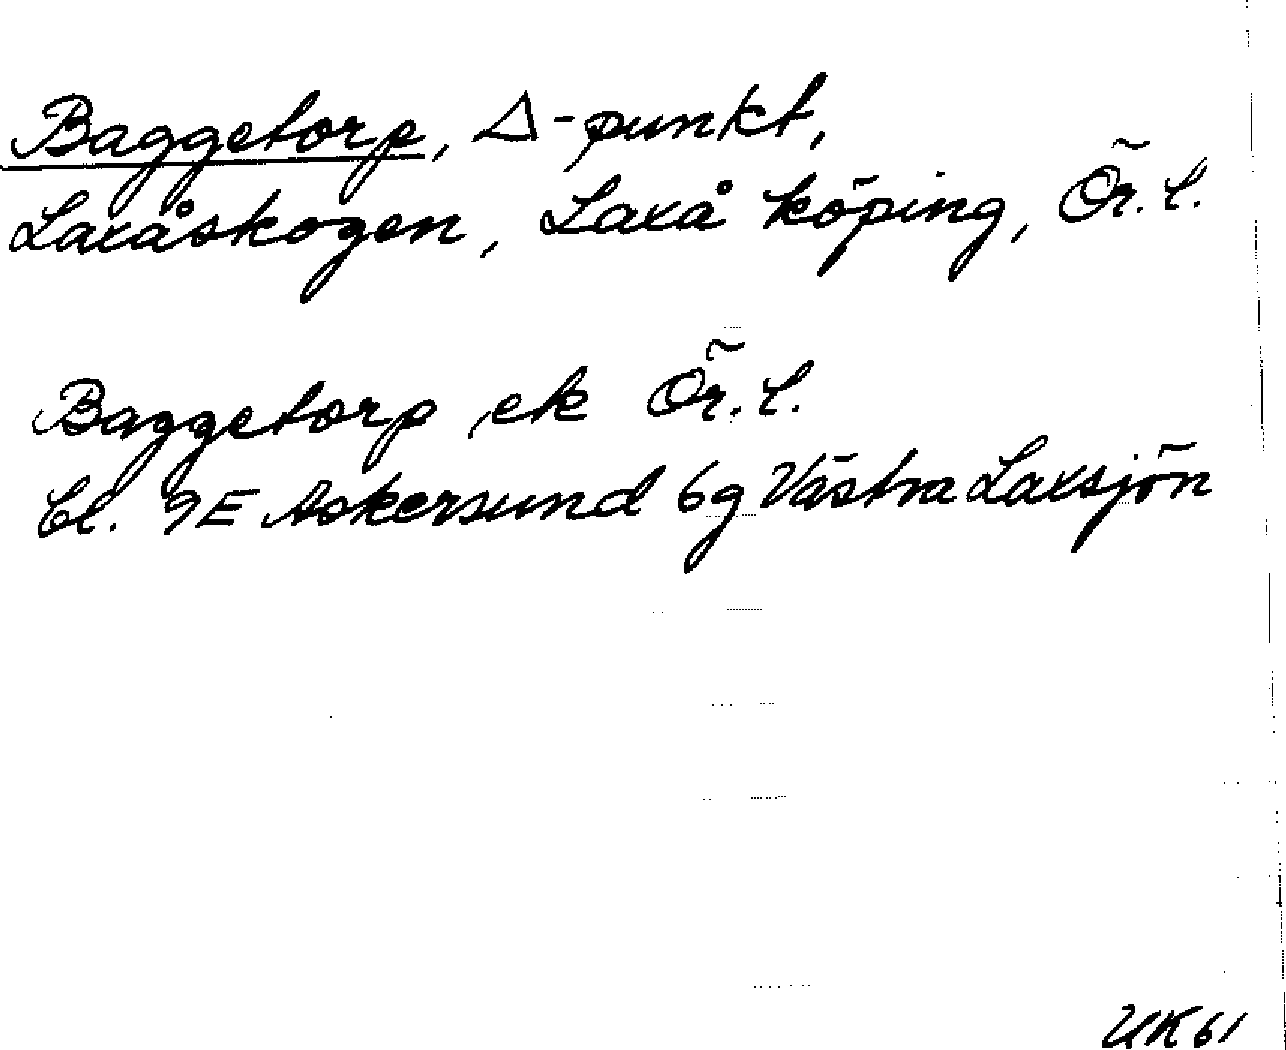 Baggetorp, Δ-punkt,
Laxåskogen, Laxå köping, Ör. l.
Baggetorp ek Ör. l.
bl. 9E Askersund 6g Västra Laxsjön
UK61